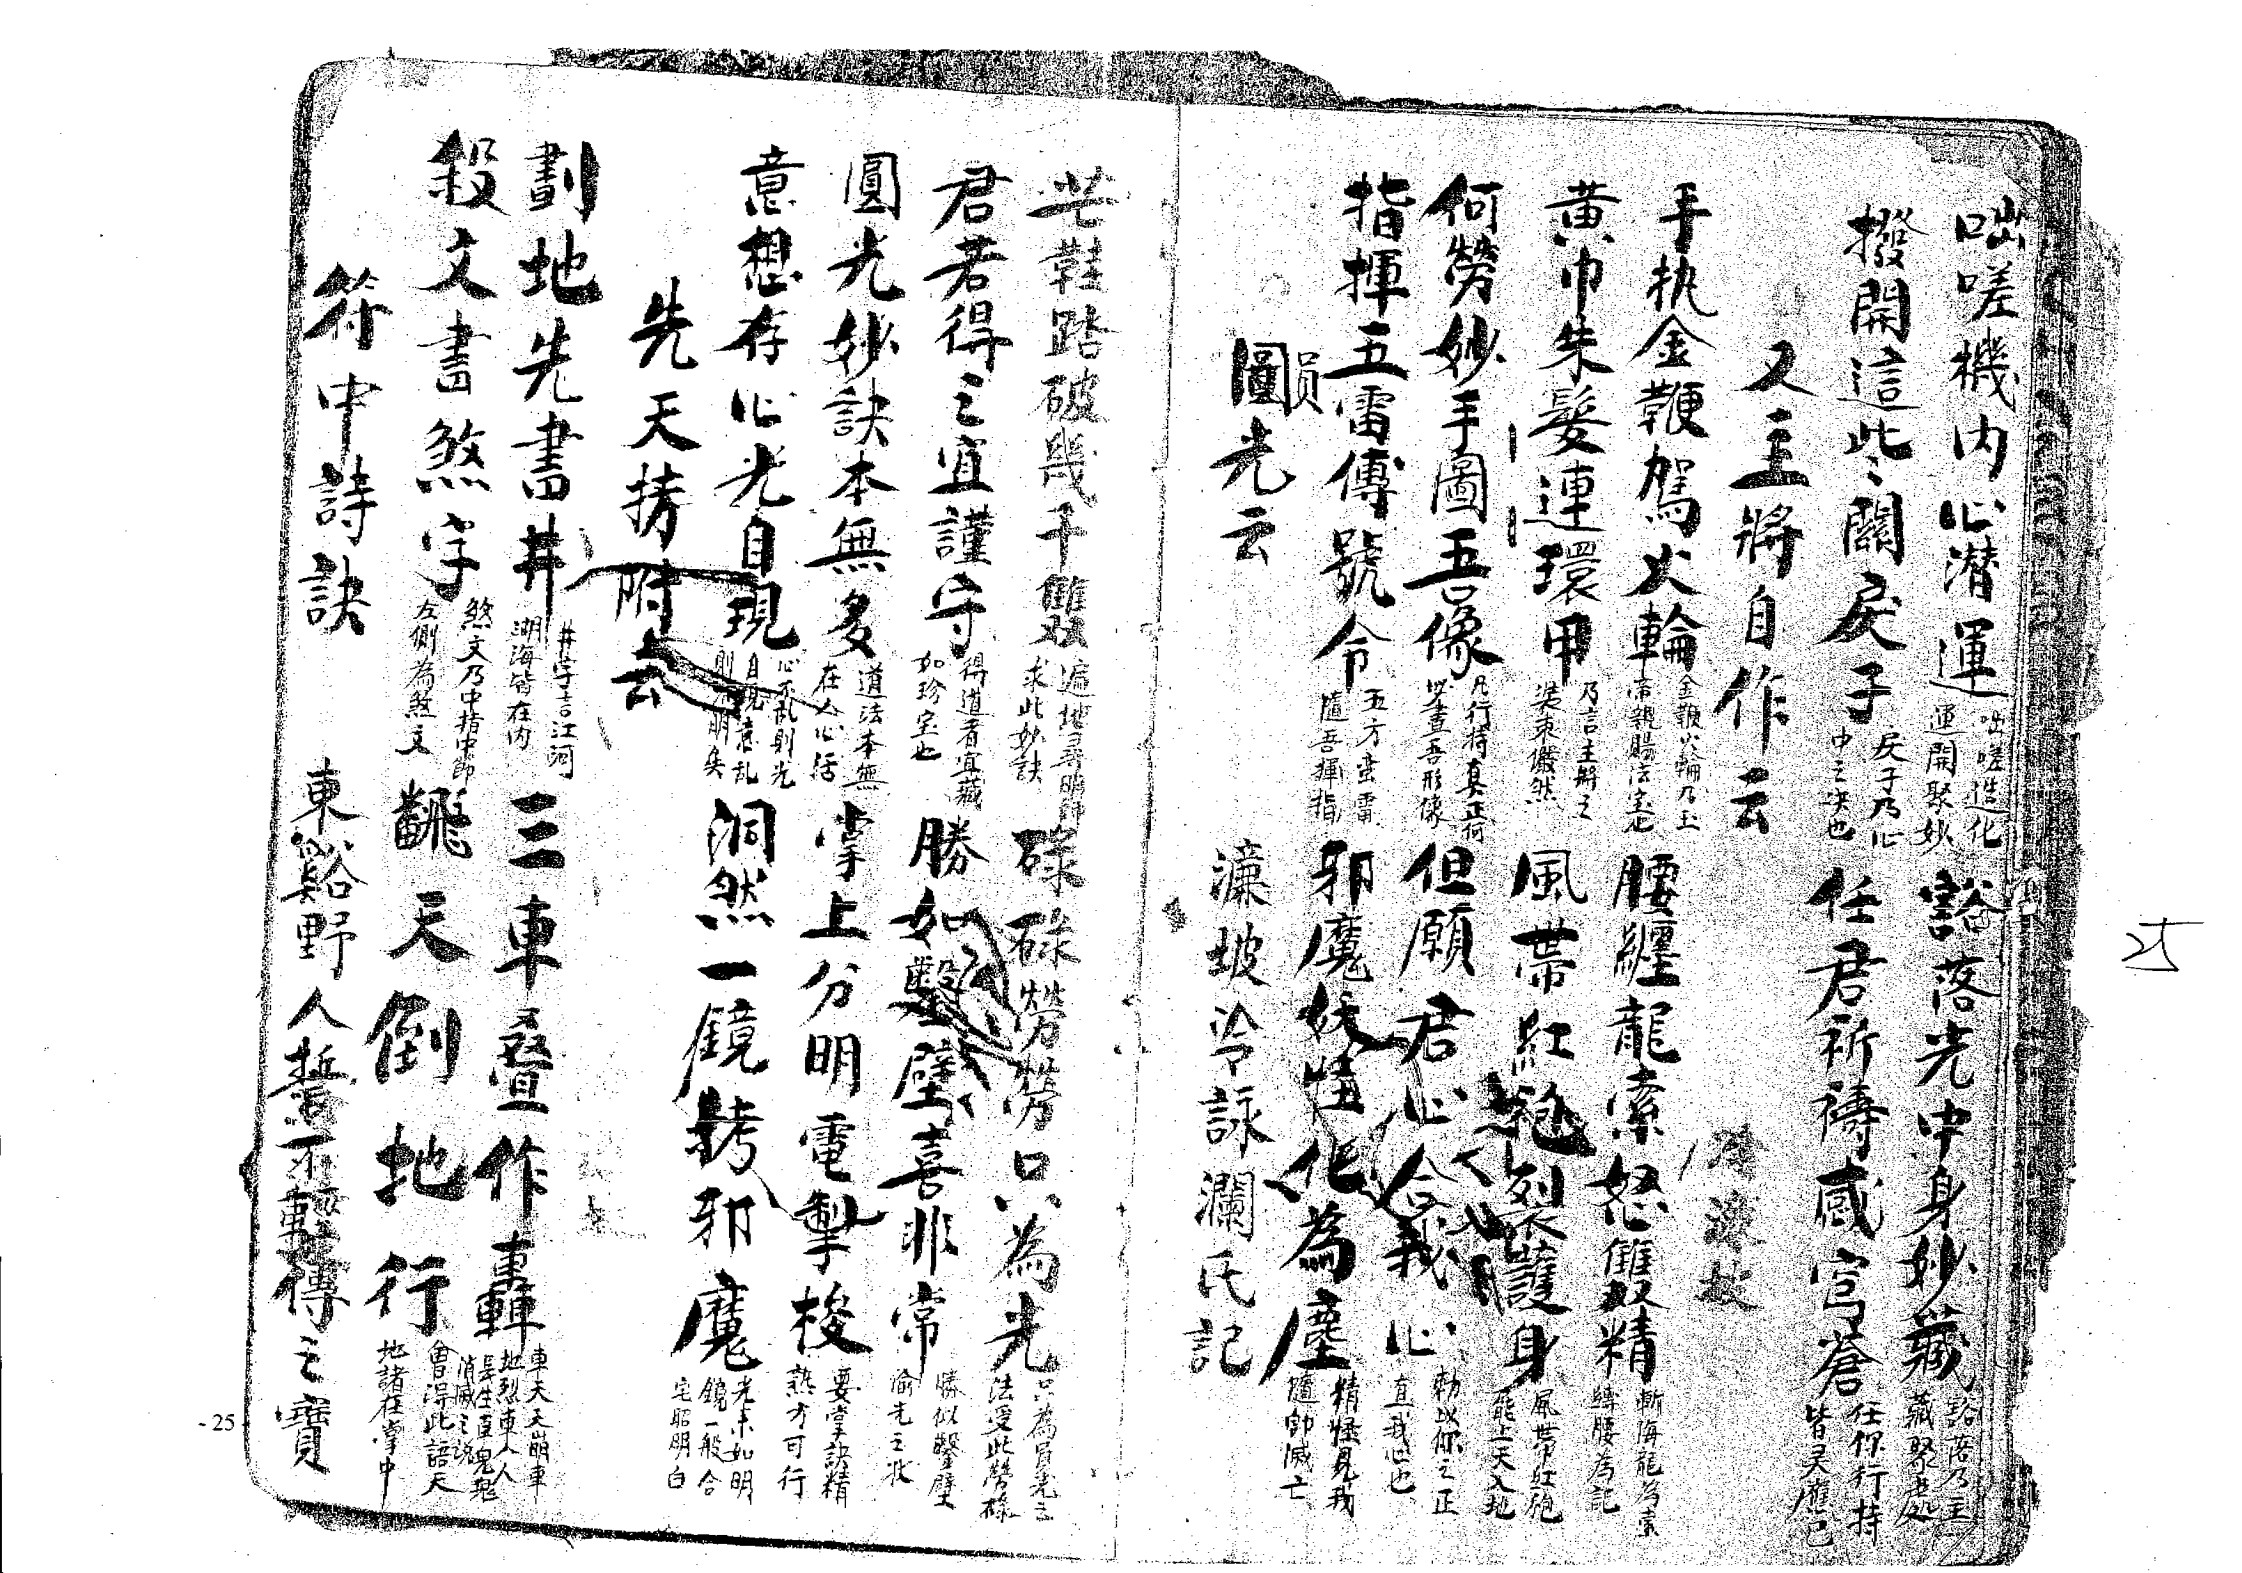 咄嗟機内心潜運 咄嗟造化運開聚妙 豁落光中身妙藏 豁落乃主藏聚處
撥開這些關戾子 戾子乃心中之決也 任君祈禱感穹蒼 任你行持皆灵應已
又主將自作云
手执金鞭駕火輪 金鞭火輪乃玉帝親賜法宝也 腰纏龍索怒雙精 斬海龍為索縛腰為記
黄巾朱髮連環甲 乃言主將之裝束儼然 風帶紅袍烈護身 風帶紅袍能上天入地
何勞妙手圖吾像 凡行持真正何必畫吾形像 但願君心合我心 勑以你之正直我心也
指揮五雷傳號令 五方蛮雷隨吾揮指 邪魔妖怪化為塵 精怪見我隨即滅亡
圓光云 濂坡冷詠瀾氏記
芒鞋踏破幾千雙 遍地尋明師求此妙訣 碌碌勞勞只為光 只為圓光之法受此勞碌
君若得之宜謹守 得道者宜藏如珍宝也 勝如鑿壁喜非常 勝似鑿壁偷光之妝
圓光妙訣本無多 道法本無在人心活 掌上分明電掣梭 要掌訣精熟方可行
意想存心光自現 心不乱則光自現意乱則不明矣 洞然一鏡拷邪魔 光未如明鏡一般合宅昭明白
先天拷附云
劃地先書井 井字言江河湖海皆在内 三車叠作轟 車天天崩車地地烈車人人長生車鬼鬼消滅之說
殺文書煞字 煞文乃中指中節左側為煞文 飜天倒地行 會得此語天地諸在掌中
符中詩訣 東谿野人誓不輕傳之寶
25
- 25